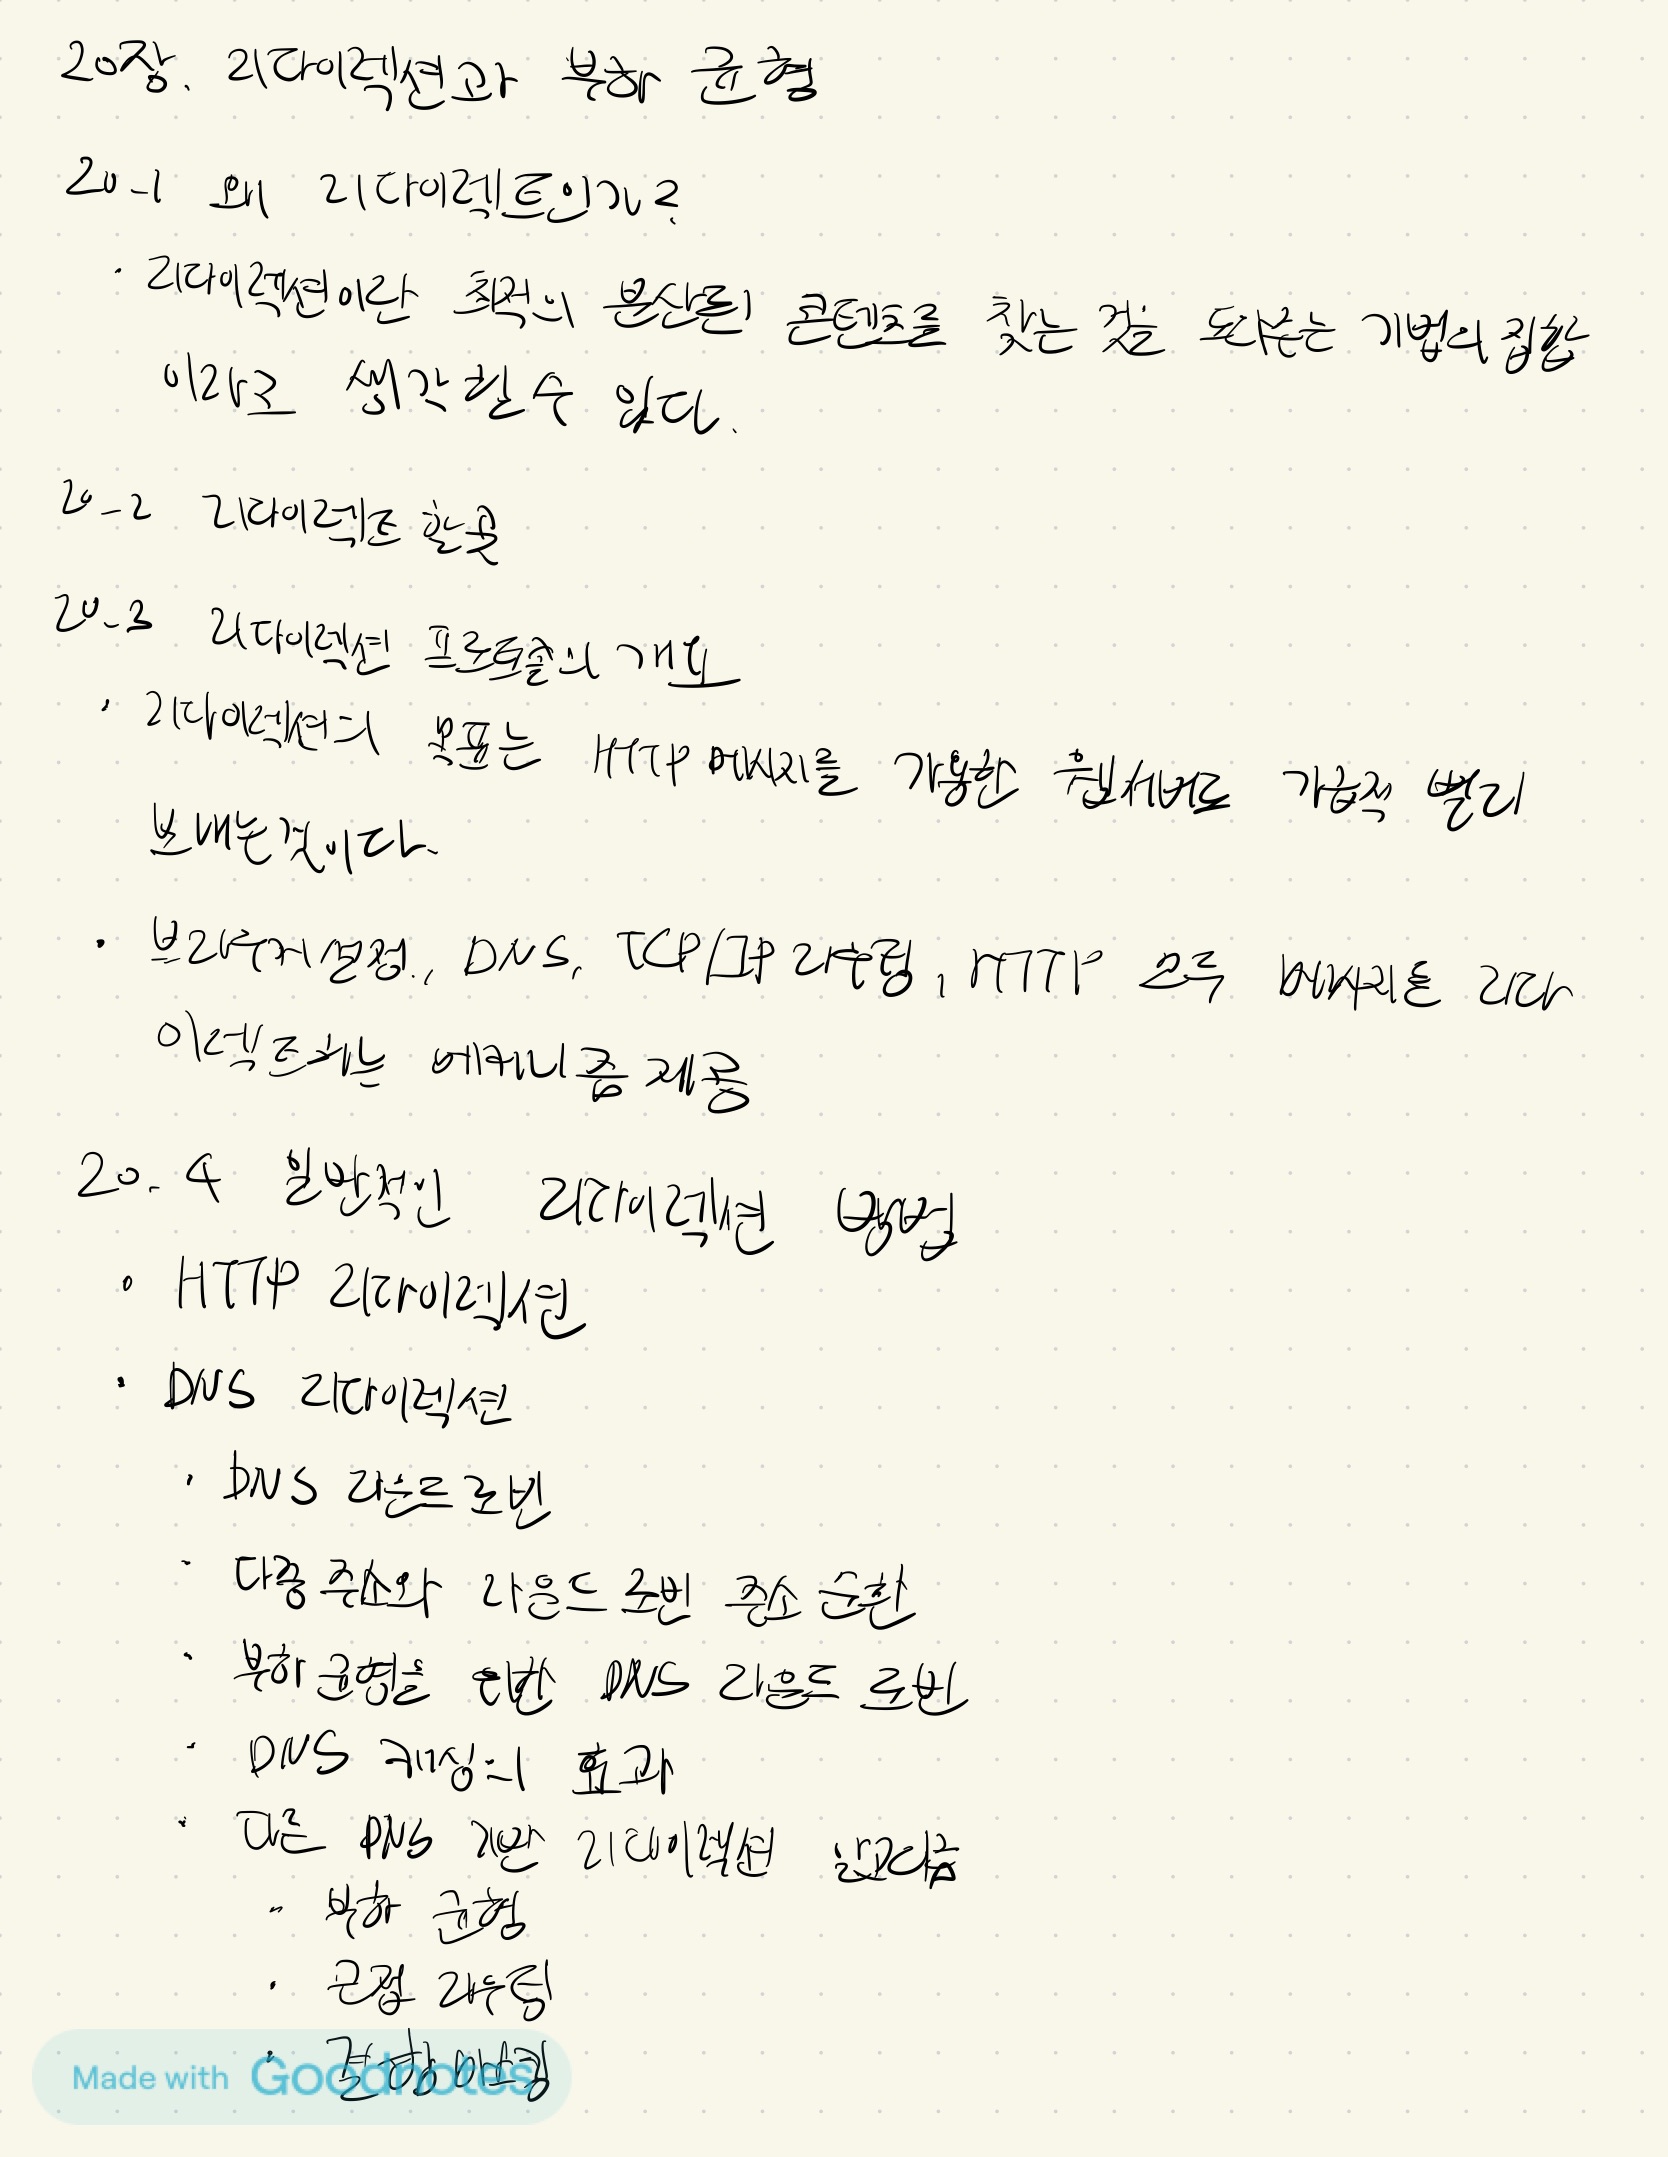 20장. 리다이렉션과 부하 균형
20-1 왜 리다이렉트인가?
· 리다이렉션이란 최적의 분산된 콘텐츠를 찾는 것을 도와주는 기법의 집합
이라고 생각할 수 있다.
20-2 리다이렉트 할 곳
20-3 리다이렉션 프로토콜의 개요
· 리다이렉션의 목표는 HTTP 메시지를 가용한 웹서버로 가급적 빨리
보내는 것이다.
· 브라우저 설정, DNS, TCP/IP 라우팅, HTTP 모두 메시지를 리다
이렉트하는 메커니즘 제공
20-4 일반적인 리다이렉션 방법
· HTTP 리다이렉션
· DNS 리다이렉션
· DNS 라운드 로빈
· 다중 주소와 라운드 로빈 주소 순환
· 부하 균형을 위한 DNS 라운드 로빈
· DNS 캐싱의 효과
· 다른 DNS 기반 리다이렉션 알고리즘
· 부하 균형
· 근접 라우팅
· 결함 마스킹
Made with Goodnotes